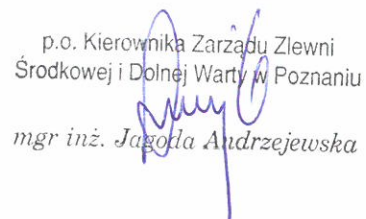 p.o. Kierownika Zarządu Zlewni
Środkowej i Dolnej Warty w Poznaniu
mgr inż. Jagoda Andrzejewska